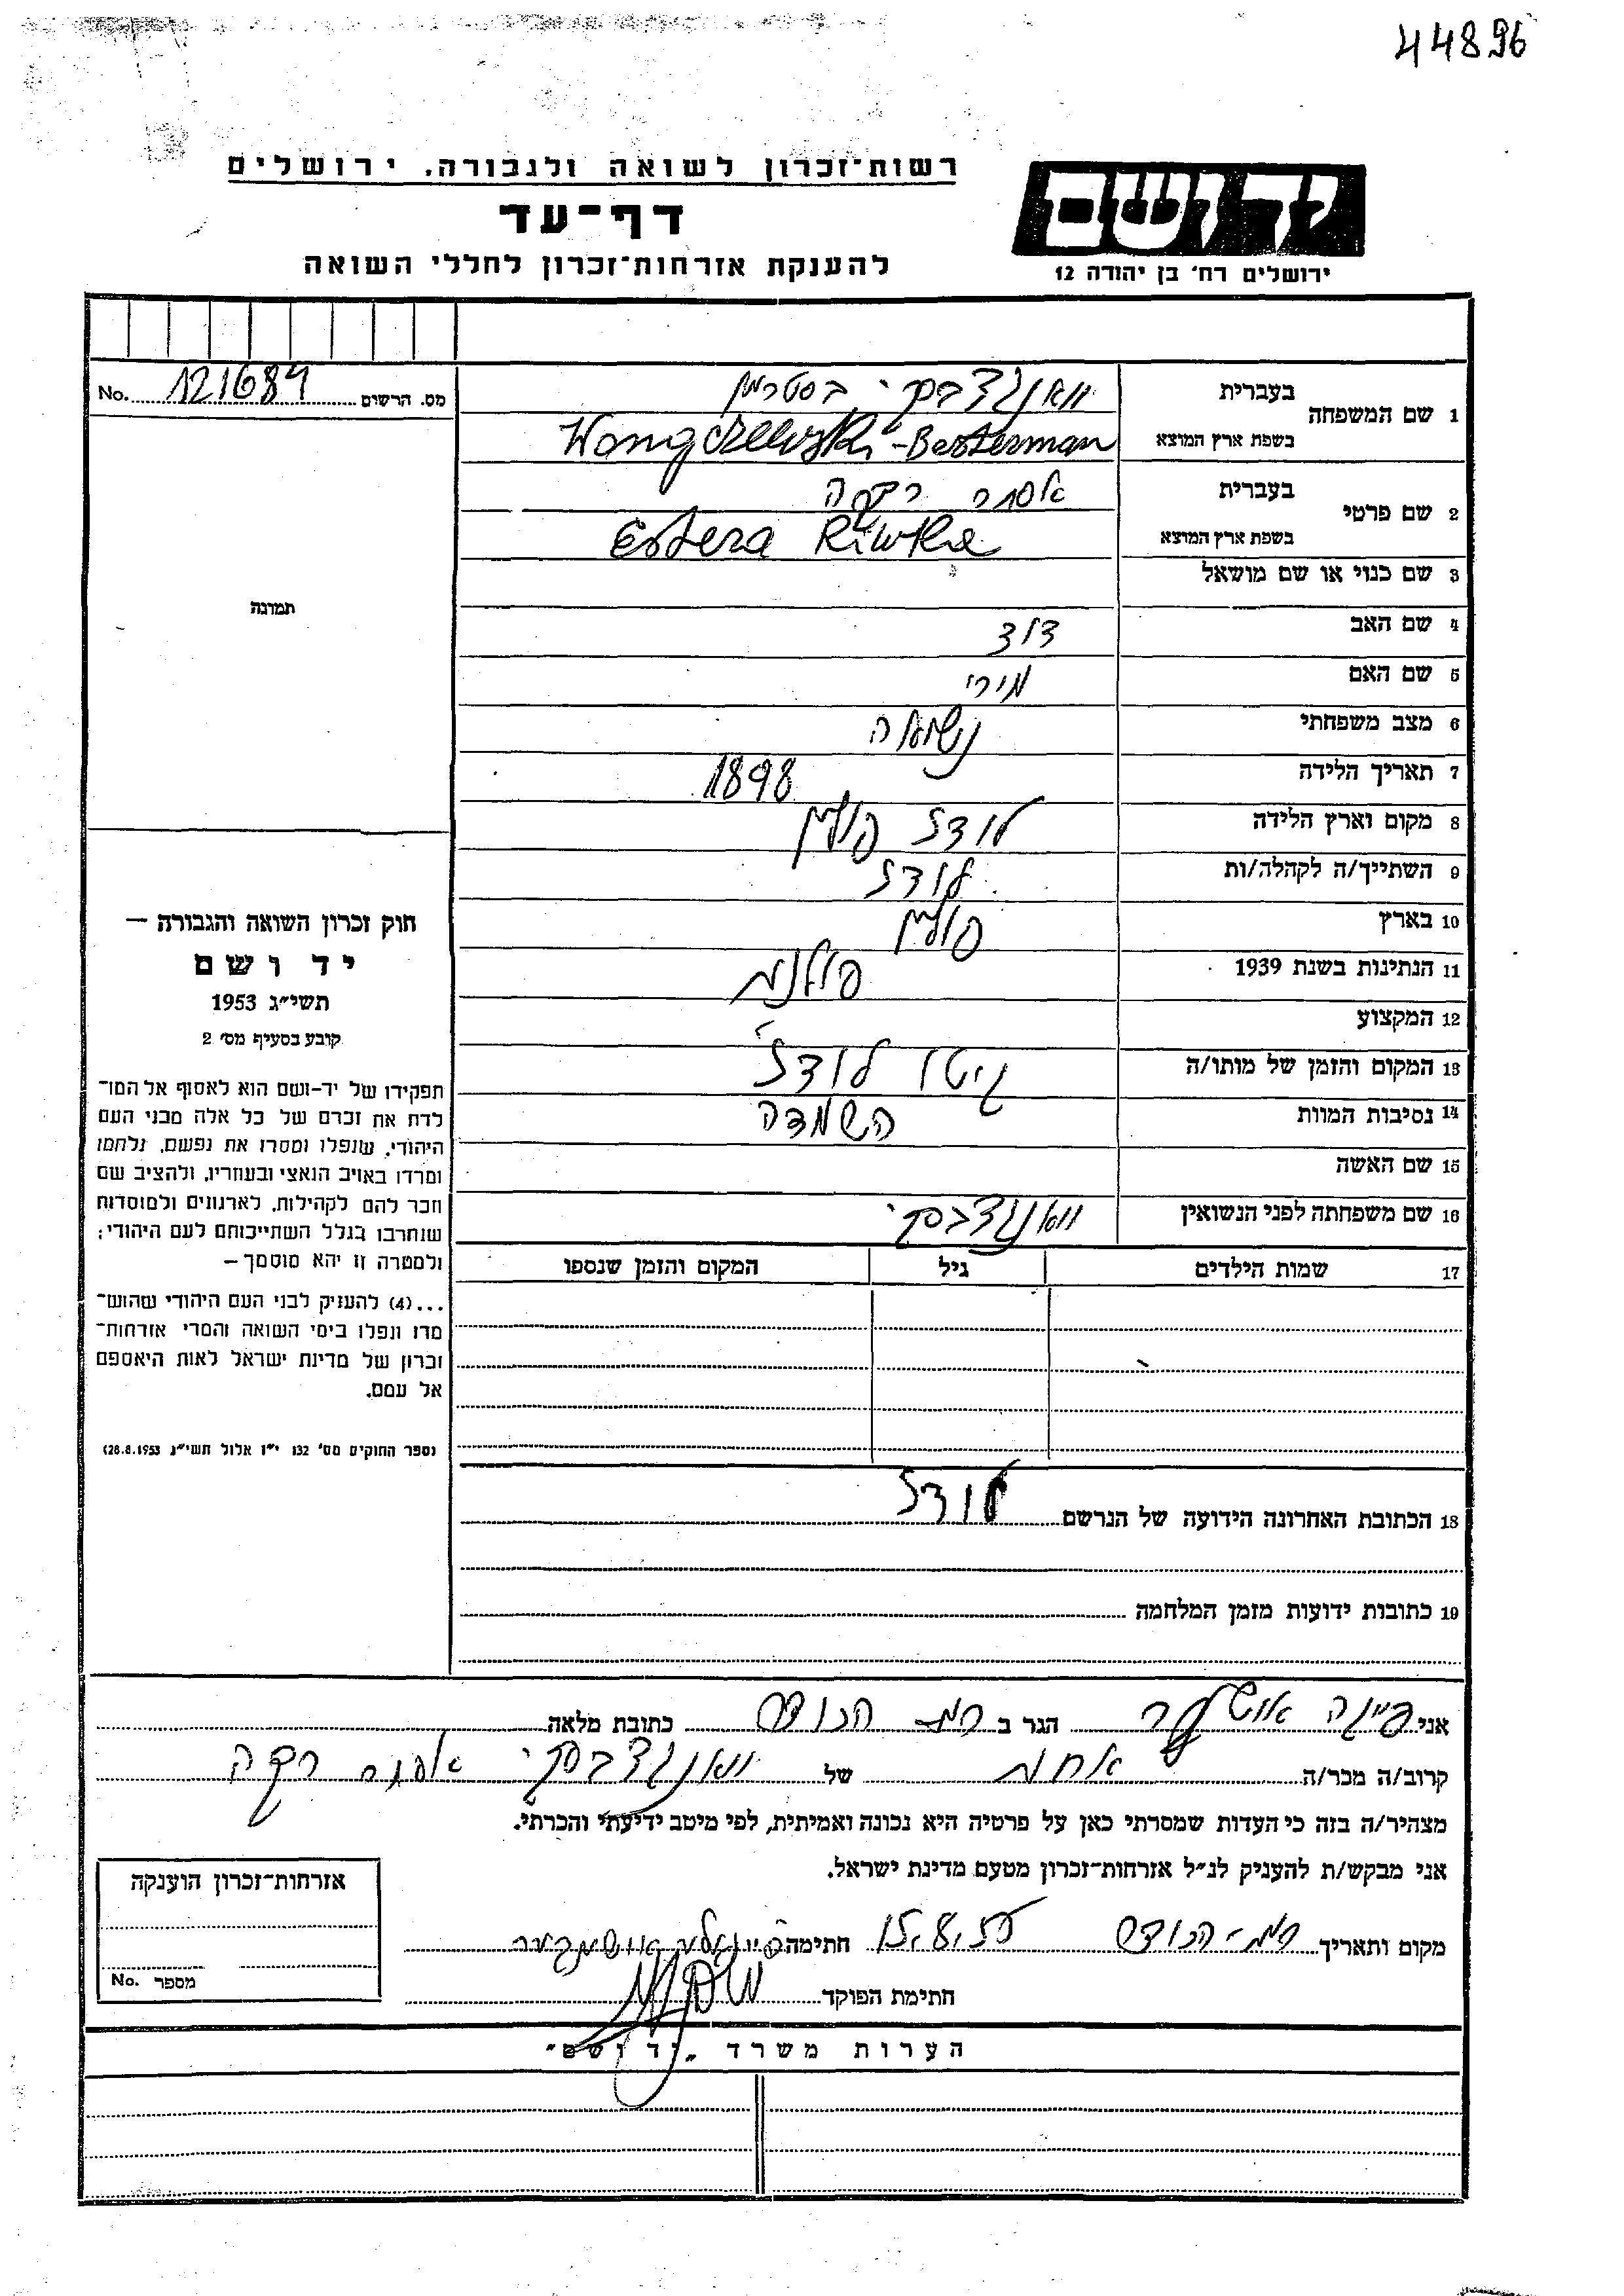 44896
רשות־זכרון לשואה ולגבורה, ירושלים
דף־עד
להענקת אזרחות־זכרון לחללי השואה
יד ושם
ירושלים רח' בן יהודה 12
מס. הרשום No. 121684
1 שם המשפחה
בעברית
בסטרמן
בשפת ארץ המוצא Wongczewski-Besterman
2 שם פרטי
בעברית אסתר רבקה
בשפת ארץ המוצא Estera Riwka
3 שם כנוי או שם מושאל
4 שם האב דוד
5 שם האם מירי
6 מצב משפחתי נשואה
7 תאריך הלידה 1898
8 מקום וארץ הלידה לודז פולין
9 השתייך/ה לקהלה/ות לודז
10 בארץ פולין
11 הנתינות בשנת 1939 פולנית
12 המקצוע
13 המקום והזמן של מותו/ה גיטו לודז'
14 נסיבות המוות השמדה
15 שם האשה
16 שם משפחתה לפני הנשואין
17 שמות הילדים גיל המקום והזמן שנספו
18 הכתובת האחרונה הידועה של הנרשם לודז
19 כתובות ידועות מזמן המלחמה
תמונה
חוק זכרון השואה והגבורה —
יד ושם
תשי"ג 1953
קובע בסעיף מס' 2
תפקידו של יד-ושם הוא לאסוף אל המו־
לדת את זכרם של כל אלה מבני העם
היהודי, שנפלו ומסרו את נפשם, נלחמו
ומרדו באויב הנאצי ובעוזריו, ולהציב שם
וזכר להם לקהילות, לארגונים ולמוסדות
שנחרבו בגלל השתייכותם לעם היהודי;
ולמטרה זו יהא מוסמך —
...(4) להעניק לבני העם היהודי שהוש־
מדו ונפלו בימי השואה והמרי אזרחות־
זכרון של מדינת ישראל לאות היאספם
אל עמם.
(ספר החוקים מס' 132 י"ז אלול תשי"ג 28.8.1953)
אני פייגה הגר ב רמת הכובש כתובת מלאה
קרוב/ה מכר/ה אחות של אסתר רבקה
מצהיר/ה בזה כי העדות שמסרתי כאן על פרטיה היא נכונה ואמיתית, לפי מיטב ידיעתי והכרתי.
אני מבקש/ת להעניק לנ"ל אזרחות־זכרון מטעם מדינת ישראל.
מקום ותאריך רמת-הכובש 15.8.55 חתימה
חתימת הפוקד
אזרחות־זכרון הוענקה
מספר No.
הערות משרד „יד ושם"